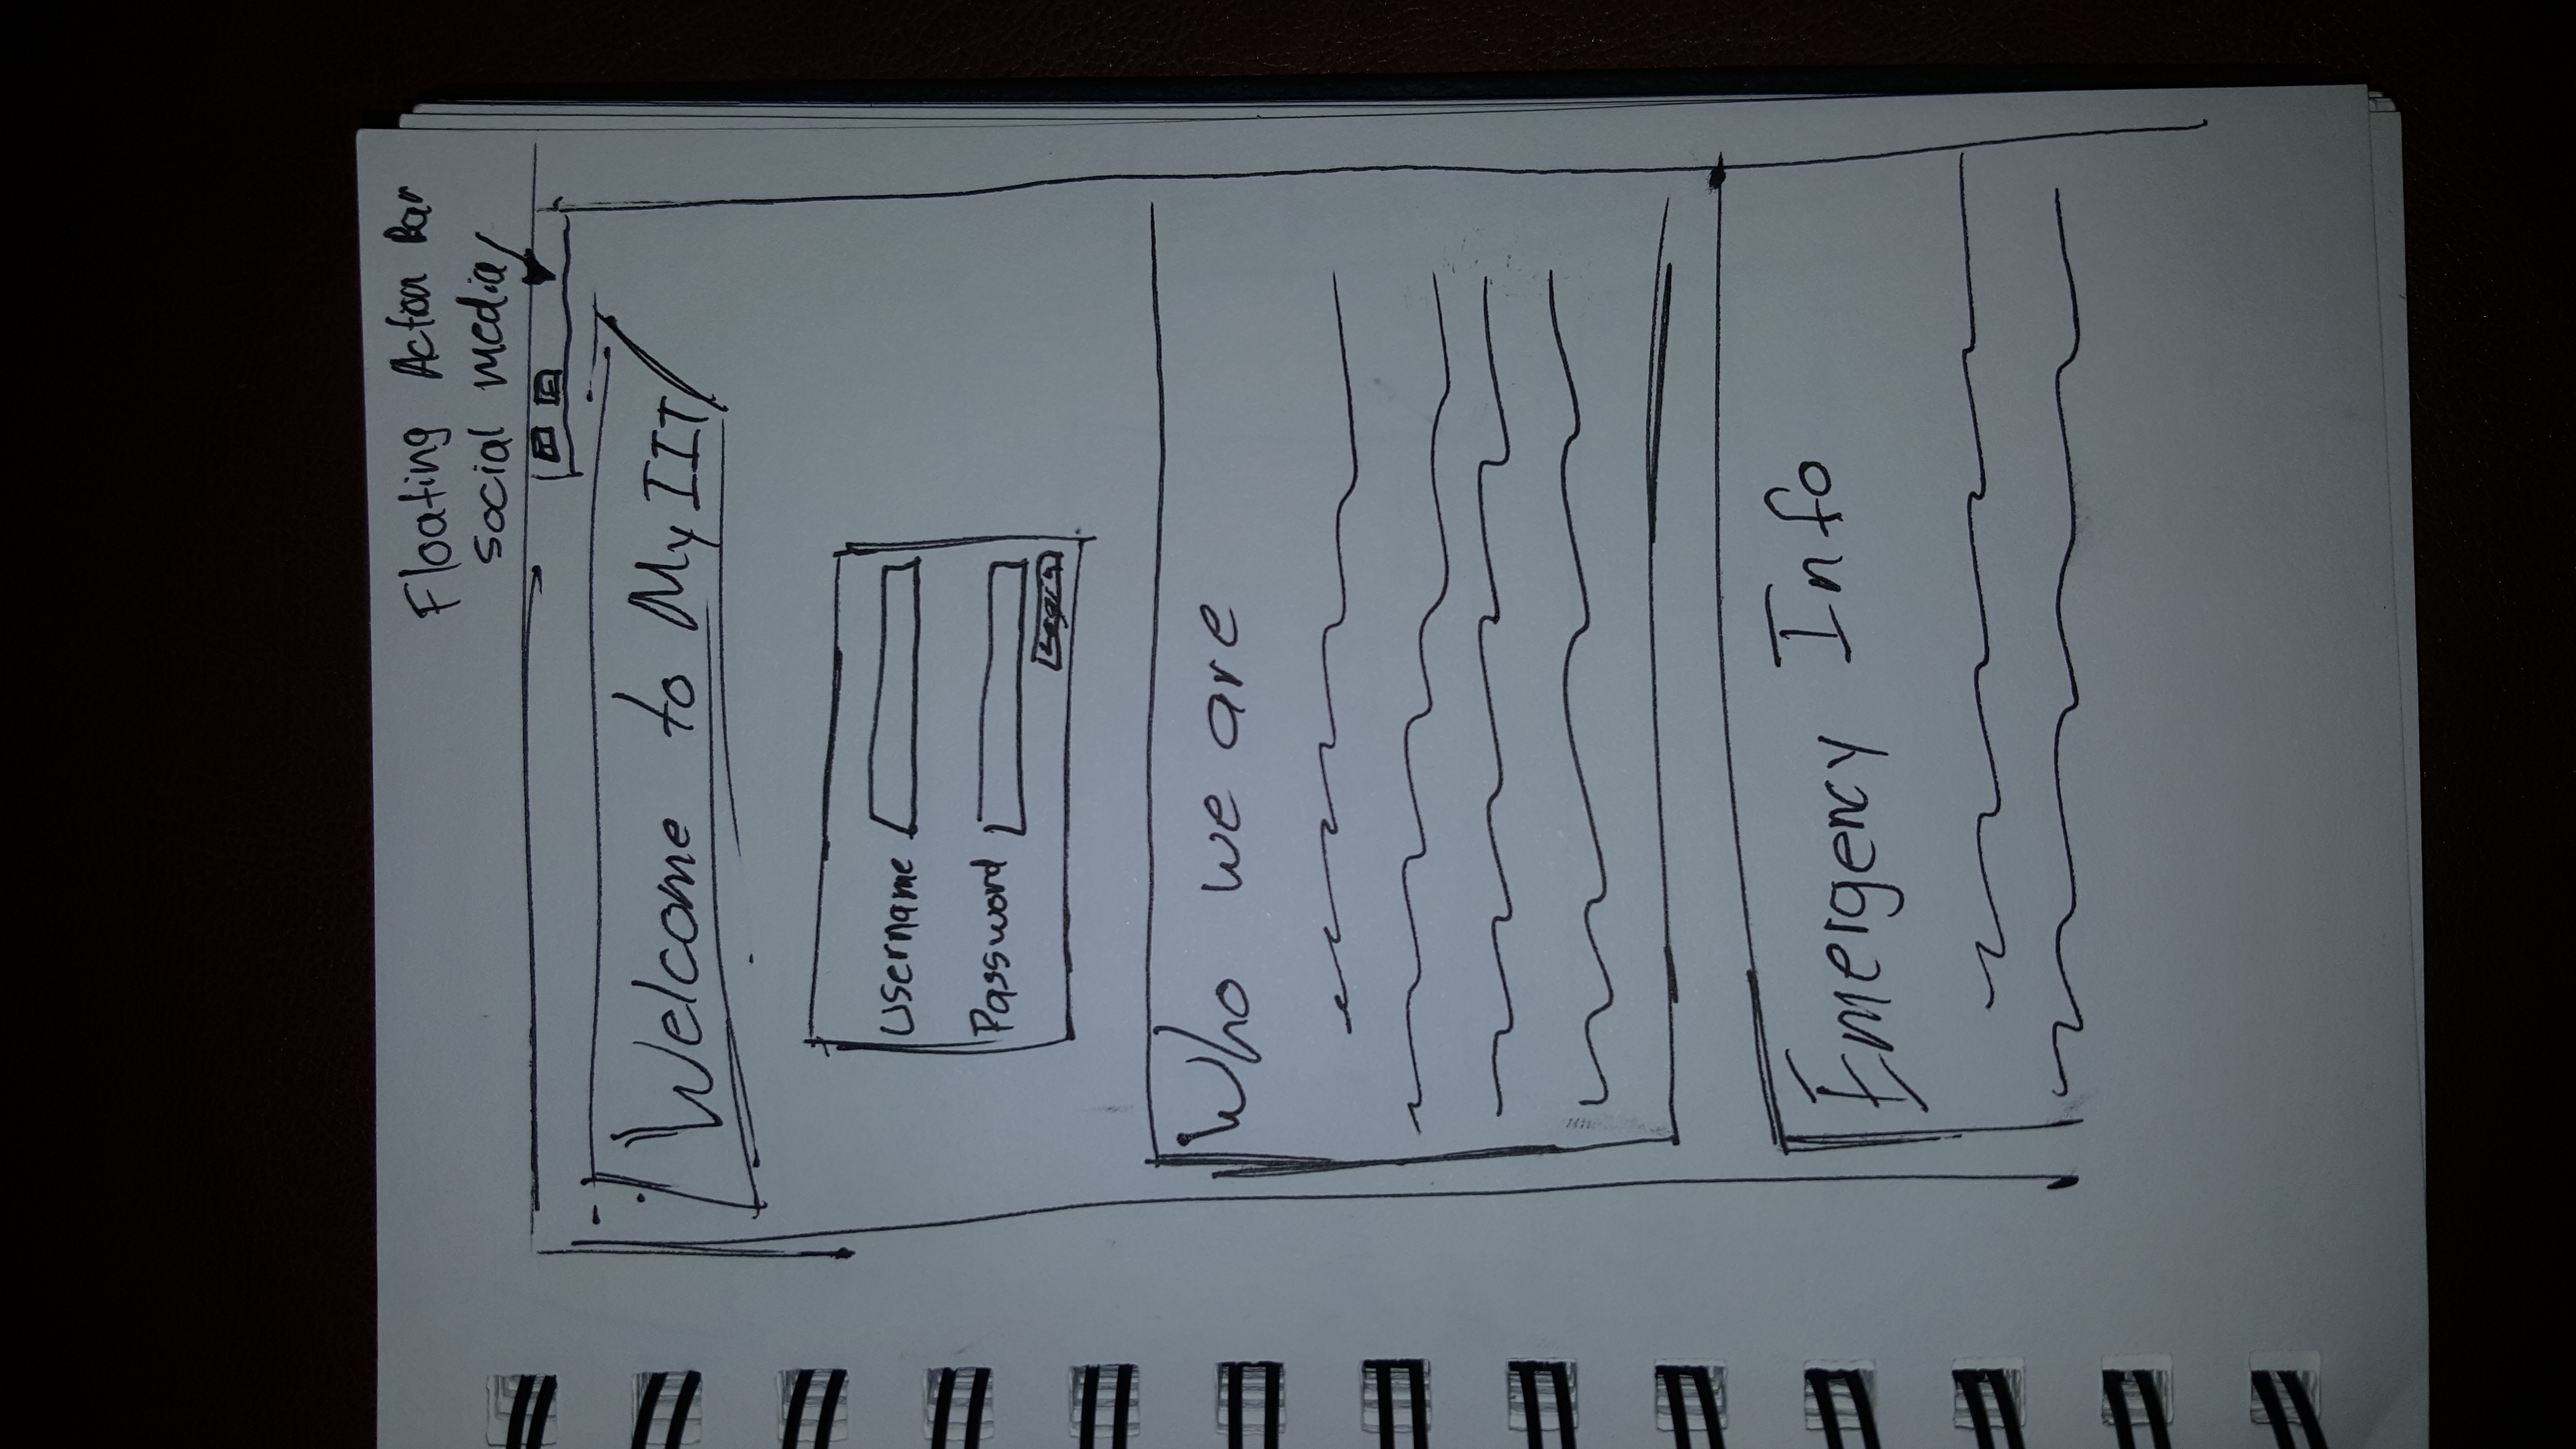 Floating Action Bar
social media
Welcome to My IIT
Username
Password
Login
Who we are
Emergency Info